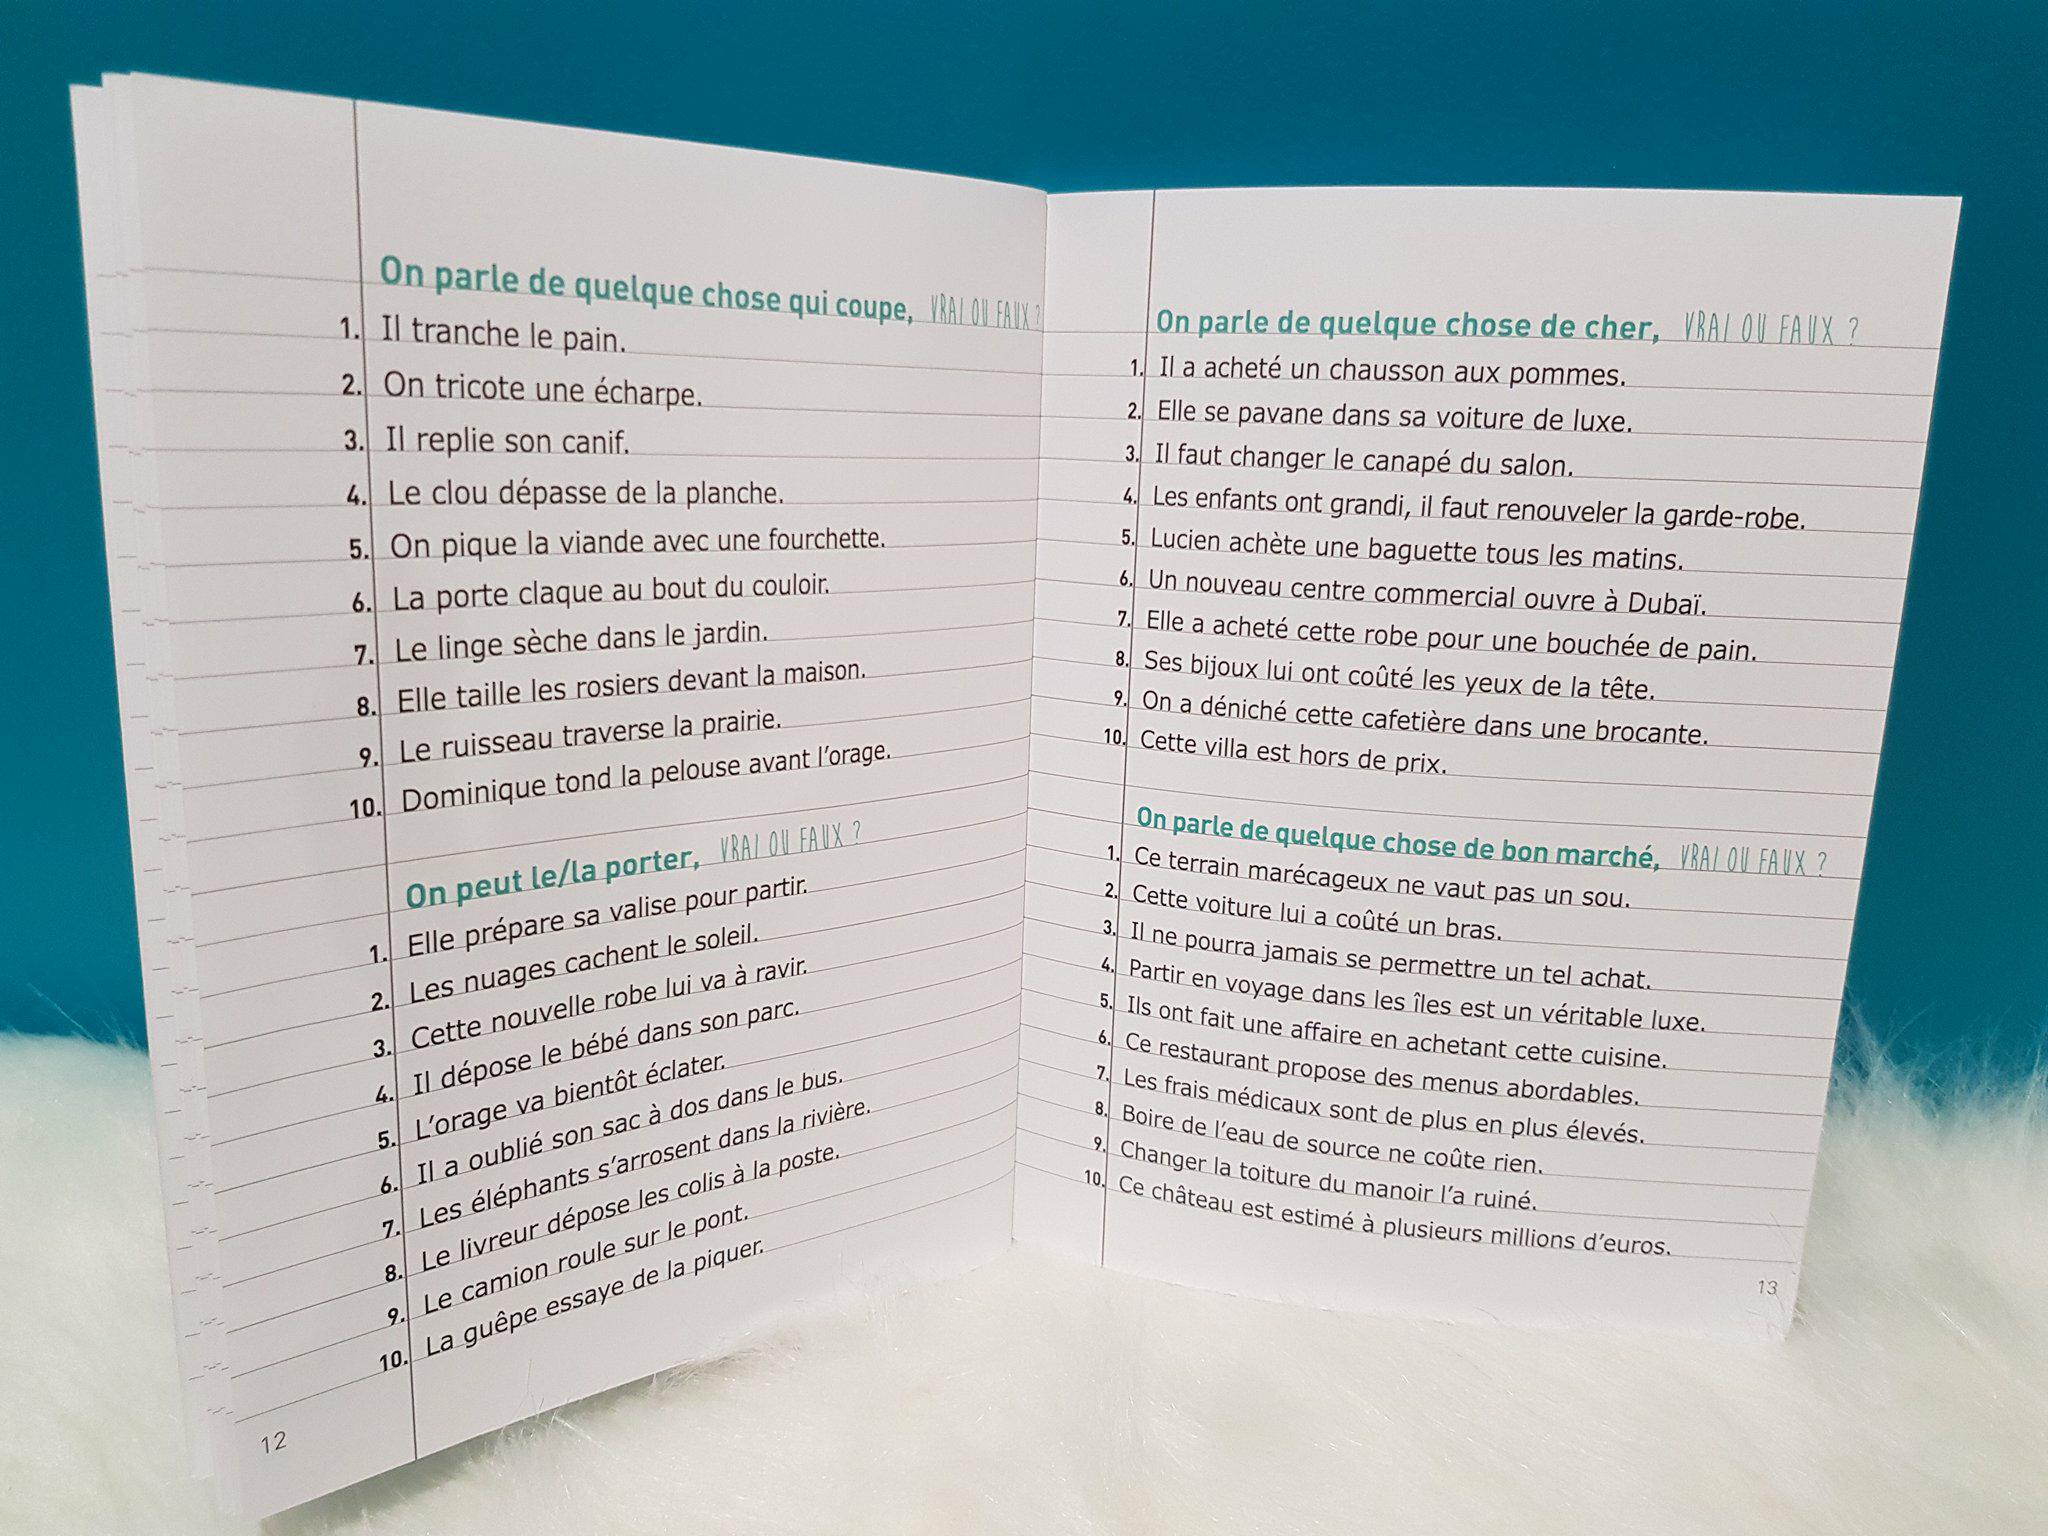 On parle de quelque chose qui coupe, VRAI OU FAUX ?
1. Il tranche le pain.
2. On tricote une écharpe.
3. Il replie son canif.
4. Le clou dépasse de la planche.
5. On pique la viande avec une fourchette.
6. La porte claque au bout du couloir.
7. Le linge sèche dans le jardin.
8. Elle taille les rosiers devant la maison.
9. Le ruisseau traverse la prairie.
10. Dominique tond la pelouse avant l'orage.
On peut le/la porter, VRAI OU FAUX ?
1. Elle prépare sa valise pour partir.
2. Les nuages cachent le soleil.
3. Cette nouvelle robe lui va à ravir.
4. Il dépose le bébé dans son parc.
5. L'orage va bientôt éclater.
6. Il a oublié son sac à dos dans le bus.
7. Les éléphants s'arrosent dans la rivière.
8. Le livreur dépose les colis à la poste.
9. Le camion roule sur le pont.
10. La guêpe essaye de la piquer.
12
On parle de quelque chose de cher, VRAI OU FAUX ?
1. Il a acheté un chausson aux pommes.
2. Elle se pavane dans sa voiture de luxe.
3. Il faut changer le canapé du salon.
4. Les enfants ont grandi, il faut renouveler la garde-robe.
5. Lucien achète une baguette tous les matins.
6. Un nouveau centre commercial ouvre à Dubaï.
7. Elle a acheté cette robe pour une bouchée de pain.
8. Ses bijoux lui ont coûté les yeux de la tête.
9. On a déniché cette cafetière dans une brocante.
10. Cette villa est hors de prix.
On parle de quelque chose de bon marché, VRAI OU FAUX ?
1. Ce terrain marécageux ne vaut pas un sou.
2. Cette voiture lui a coûté un bras.
3. Il ne pourra jamais se permettre un tel achat.
4. Partir en voyage dans les îles est un véritable luxe.
5. Ils ont fait une affaire en achetant cette cuisine.
6. Ce restaurant propose des menus abordables.
7. Les frais médicaux sont de plus en plus élevés.
8. Boire de l'eau de source ne coûte rien.
9. Changer la toiture du manoir l'a ruiné.
10. Ce château est estimé à plusieurs millions d'euros.
13